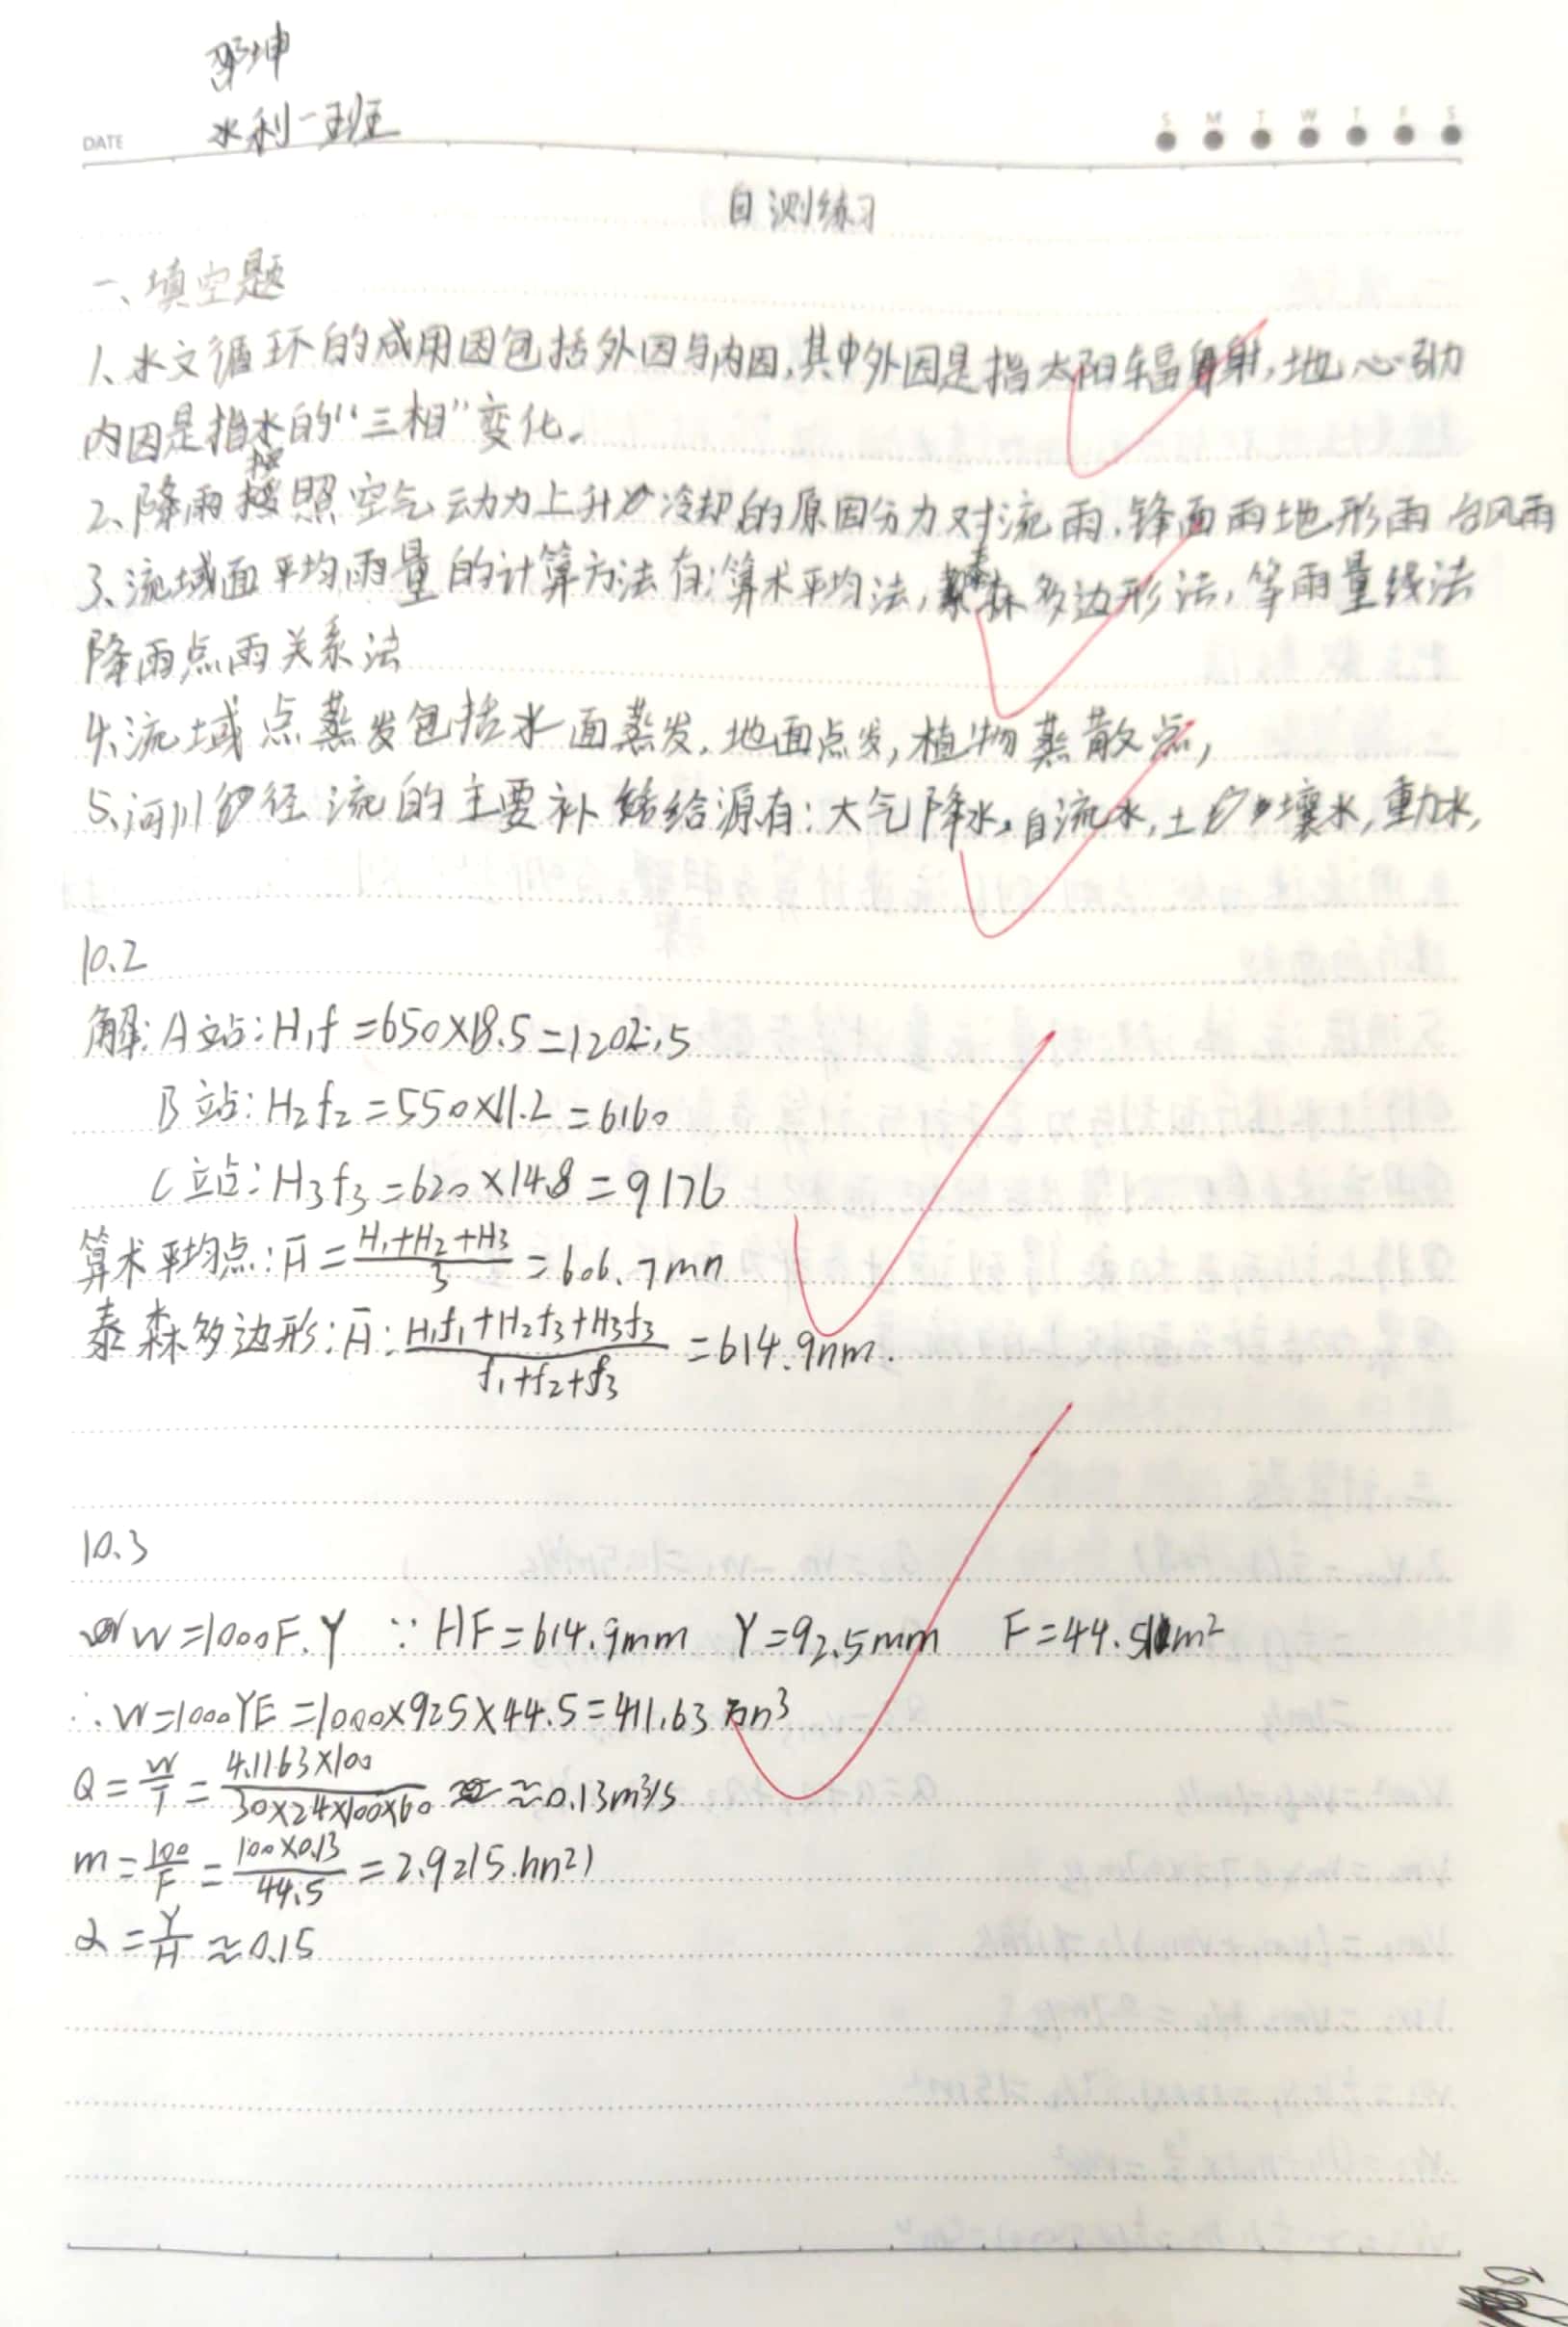 坤
水利一班
DATE
S M T W T F S
自测练习
一、填空题
1、水文循环的成用因包括外因与内因,其中外因是指太阳辐射,地心引力
内因是指水的“三相”变化。
按
2、降雨按照空气动力上升冷却的原因分为对流雨,锋面雨地形雨台风雨
3、流域面平均雨量的计算方法有:算术平均法,泰森多边形法,等雨量线法
降雨点雨关系法
4、流域点蒸发包括水面蒸发,地面点发,植物蒸散点,
5、河川径流的主要补给源有:大气降水,自流水,土壤水,重力水,
10.2
解:A站:H₁f=650×18.5=1202.5
B站:H₂f₂=550×11.2=6160
C站:H₃f₃=620×14.8=9176
算术平均点:H̄=(H₁+H₂+H₃)/3=606.7mn
泰森多边形:H̄:(H₁f₁+H₂f₃+H₃f₃)/(f₁+f₂+f₃)=614.9nm.
10.3
W=1000F.Y ∵HF=614.9mm Y=92.5mm F=44.5km²
∴W=1000YF=1000×925×44.5=411.63万n³
Q=W/T=4.1163×100/30×24×100×60≈0.13m³/s
m=100/F=100×0.13/44.5=2.92(5.hn²)
α=Y/H≈0.15